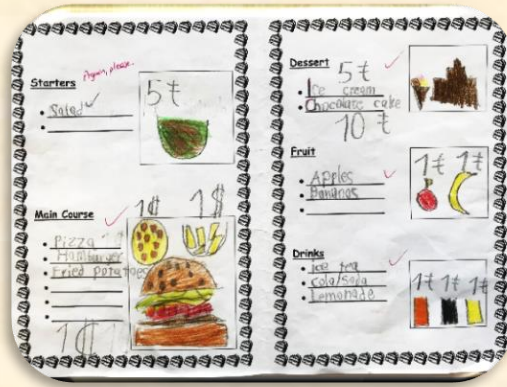 Starters
Again, please.
• Salad
5 ₺
Main Course
1 $ 1 $
• Pizza
• Hamburger
• Fried potatoes
1 $
Dessert
5 ₺
• Ice cream
• Chocolate cake
10 ₺
Fruit
1 ₺ 1 ₺
• Apples
• Bananas
Drinks
• Ice tea
• cola/soda
• Lemonade
1 ₺ 1 ₺ 1 ₺